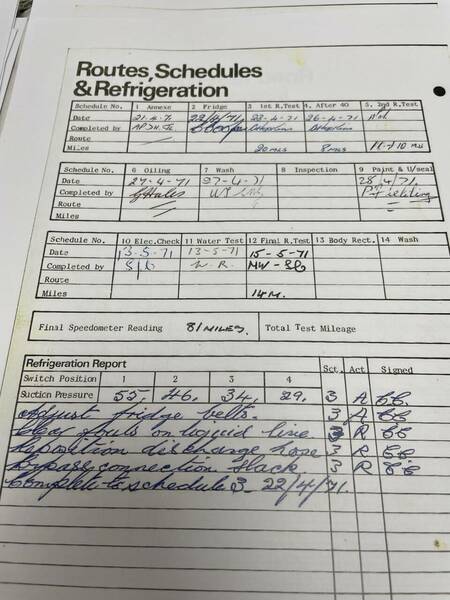 Routes, Schedules
& Refrigeration
Schedule No. 1 Annexe 2 Fridge 3 1st R.Test 4. After 40 5. 2nd R.Test
Date 21-4-71 22/4/71 23-4-71 26-4-71
Completed by
Route
Miles 20 MLS 8 MLS
Schedule No. 6 Oiling 7 Wash 8 Inspection 9 Paint & U/seal
Date 27-4-71 27-4-71 28/4/71.
Completed by G Hales P. Fielding
Route
Miles
Schedule No. 10 Elec.Check 11 Water Test 12 Final R.Test 13 Body Rect. 14 Wash
Date 13-5-71 13-5-71 15-5-71
Completed by
Route
Miles 14 M.
Final Speedometer Reading 81 MILES. Total Test Mileage
Refrigeration Report Sct. Act. Signed
Switch Position 1 2 3 4
Suction Pressure 55, 46, 34, 29. 3 A
Adjust fridge belts. 3 A
on liquid line. 3 R
Reposition discharge hose 3 R
Bypass connection slack. 3 R
Complete to schedule 3 22/4/71.